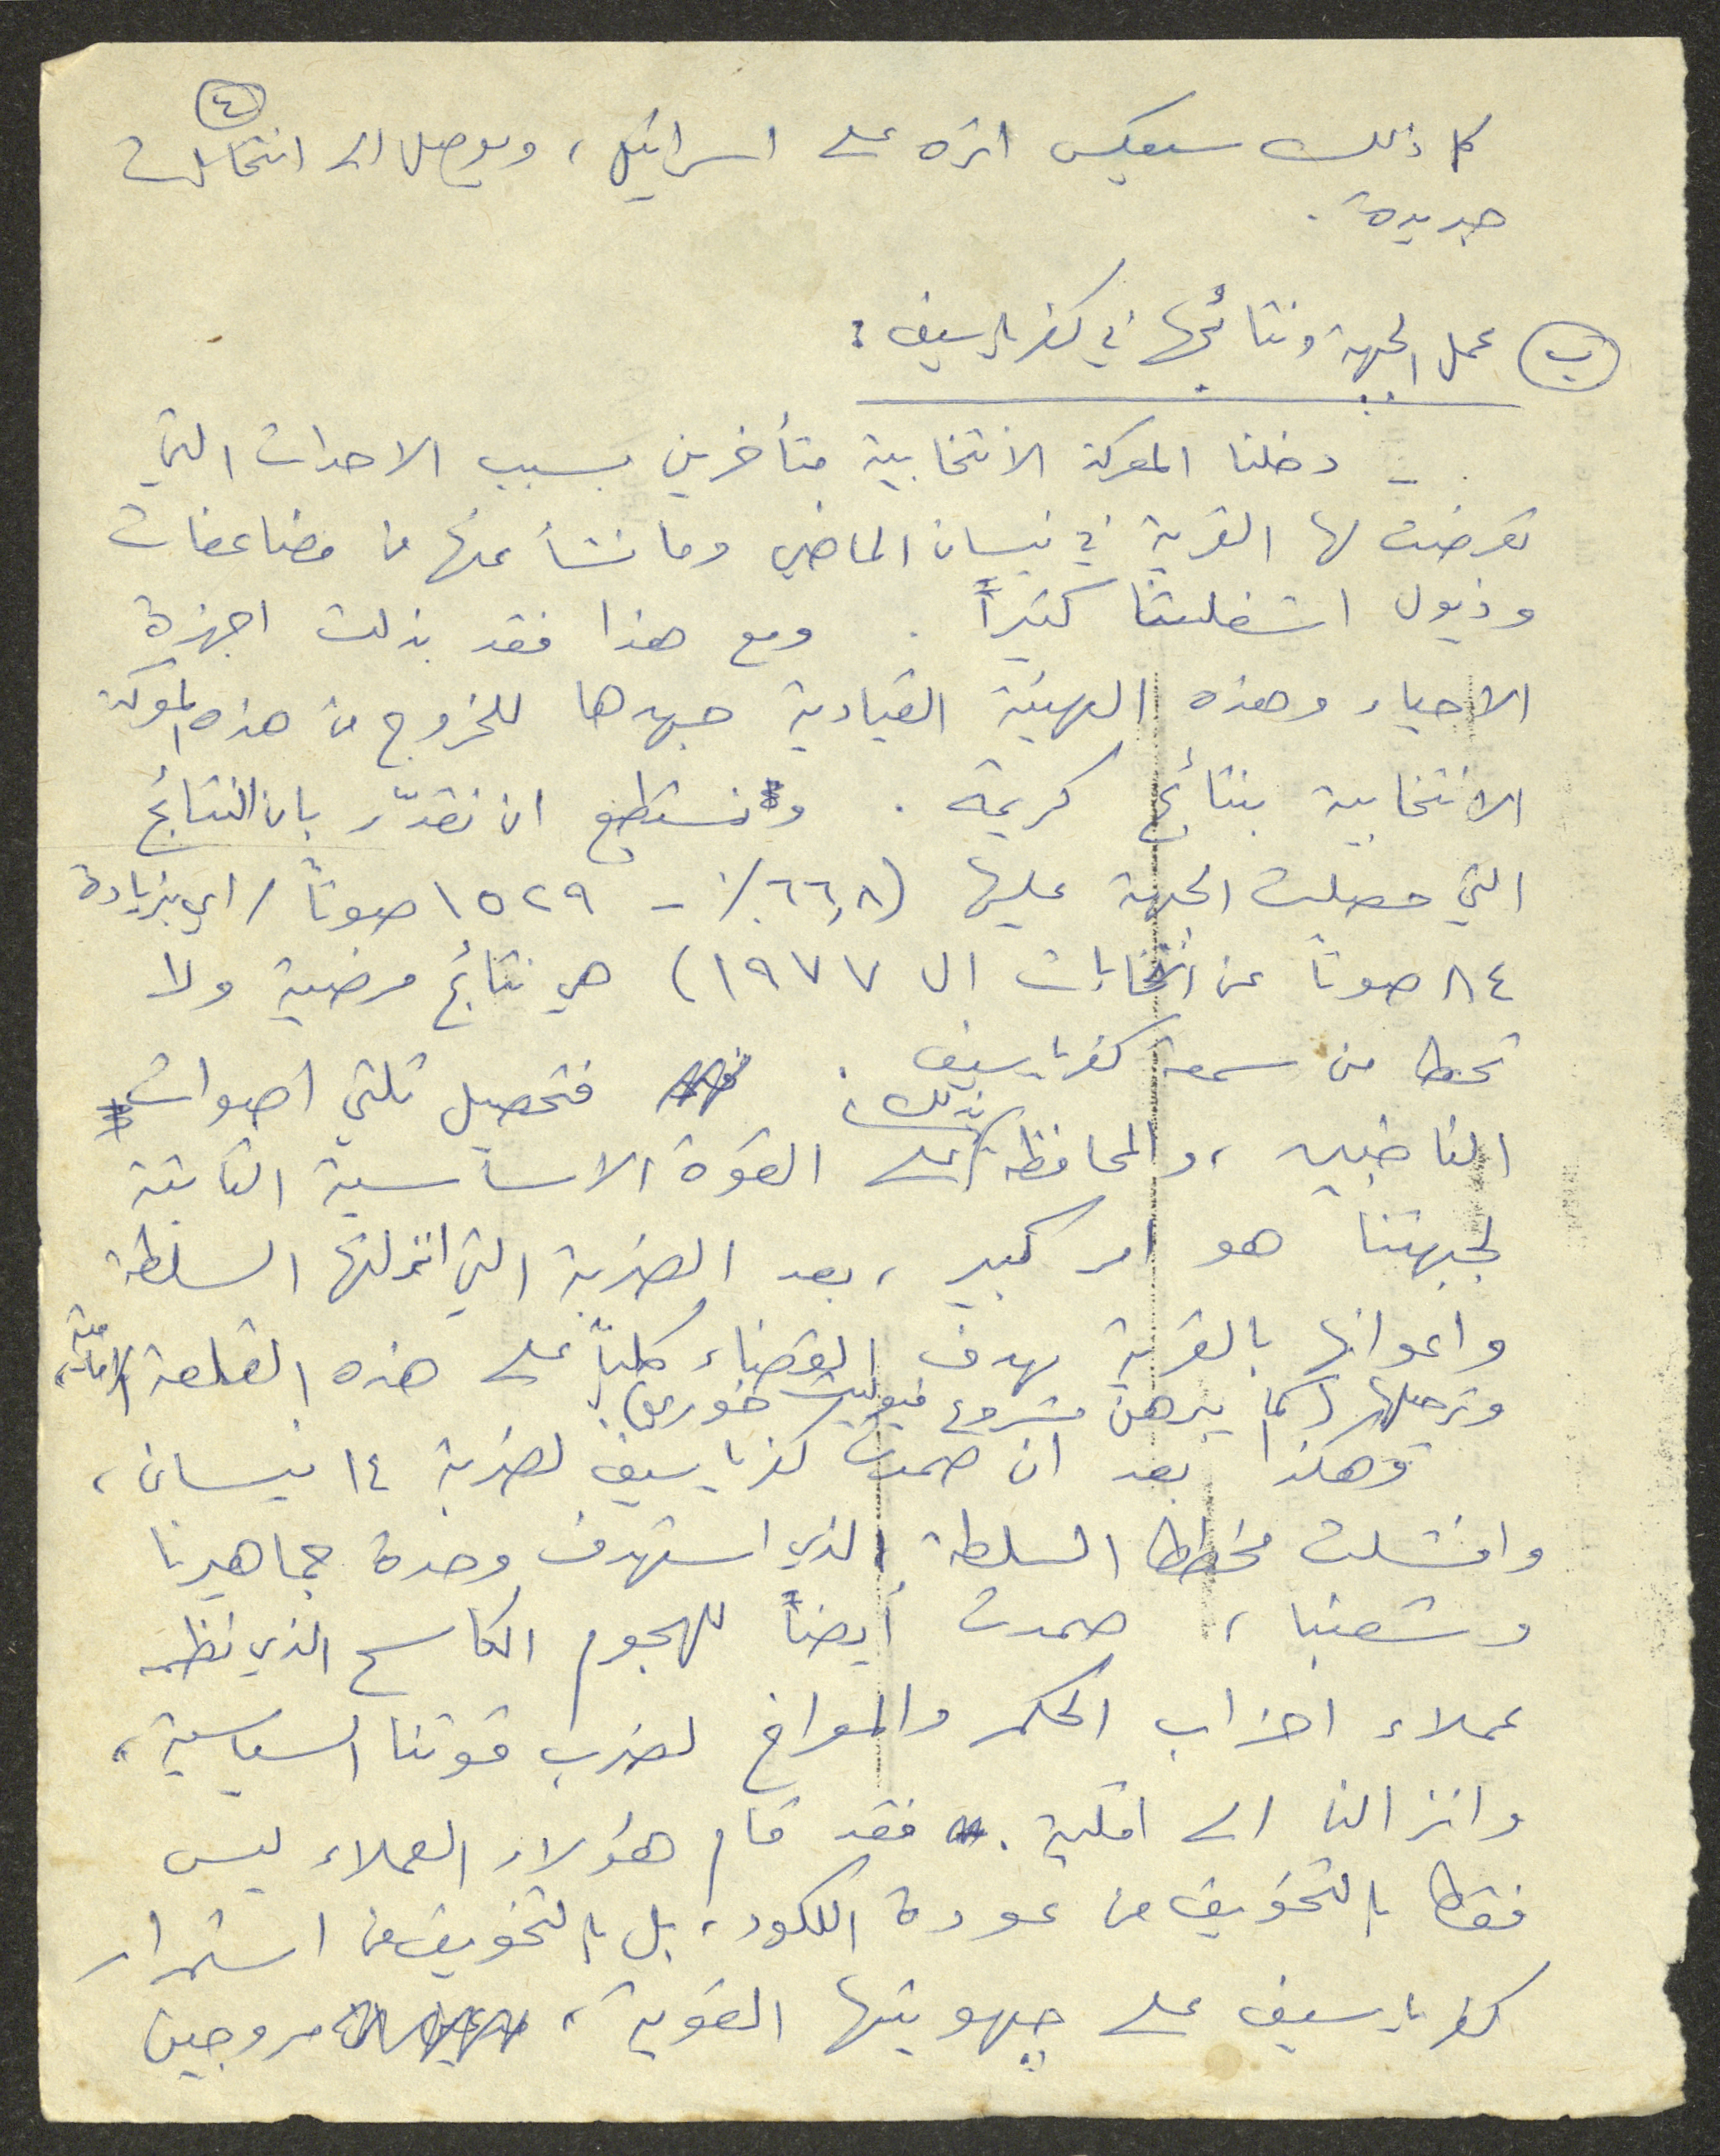 ٤
كل ذلك سيعكس اثره على اسرائيل، ويوصل الى انتخابات
جديدة.
ب عمل الجبهة ونتائجها في كفرياسيف:
- دخلنا المعركة الانتخابية متأخرين بسبب الاحداث التي
تعرضت لها القرية في نيسان الماضي وما نشأ عنها من مضاعفات
وذيول اشغلتنا كثيراً. ومع هذا فقد بذلت اجهزة
الاحياء وهذه الهيئة القيادية جهدها للخروج من هذه المعركة
الانتخابية بنتائج كريمة. ونستطيع ان نقدّر بان النتائج
التي حصلت الجبهة عليها (٦٦,٨٪ - ١٥٢٩ صوتاً / اي بزيادة
٨٤ صوتاً عن انتخابات ال ١٩٧٧) هي نتائج مرضية ولا
تحط من سمعة كفرياسيف. فتحصيل ثلثي اصوات
الناخبين، والمحافظة بذلك، على القوة الاساسية الثابتة
لجبهتنا هو امر كبير، بعد الضربة التي انزلتها السلطة
واعوانها بالقرية بهدف القضاء كلياً على هذه القلعة الامامية،
وترحيلها (كما يبرهن مشروع فيوليت خوري).
وهكذا بعد ان صمدت كفرياسيف لضربة ١٤ نيسان،
وافشلت مخطط السلطة الذي استهدف وحدة جماهيرنا
وشعبنا، صمدت أيضاً للهجوم الكاسح الذي نظمه
عملاء احزاب الحكم والمعراخ لضرب قوتنا السياسية،
وانزالنا الى اقلية. فقد قام هؤلاء العملاء ليس
فقط بالتخويف من عودة الليكود، بل بالتخويف من استمرار
كفرياسيف على جبهويتها القوية، مروجين